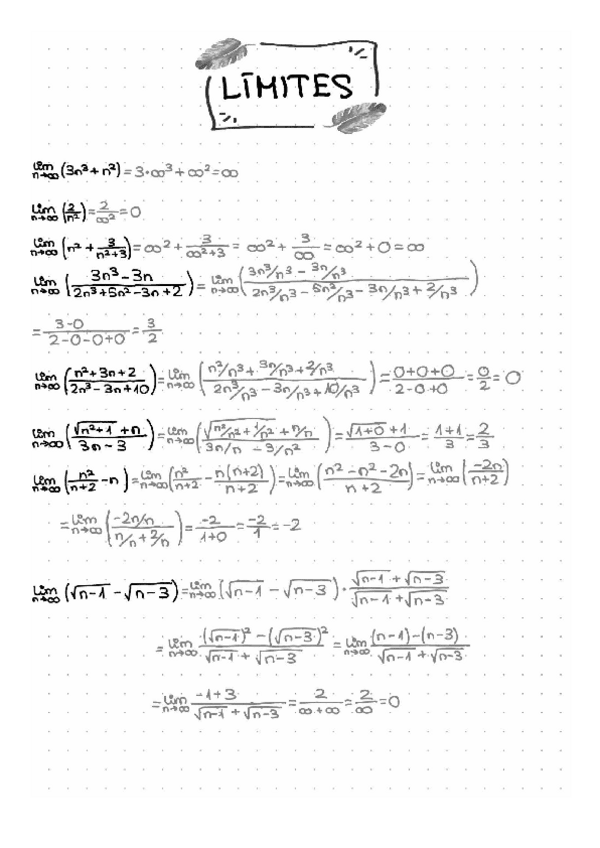 LĪMITES
lim n→∞ (3n³ + n²) = 3·∞³ + ∞² = ∞
lim n→∞ (2/n²) = 2/∞² = 0
lim n→∞ (n² + 3/(n²+3)) = ∞² + 3/(∞²+3) = ∞² + 3/∞ = ∞² + 0 = ∞
lim n→∞ ((3n³ - 3n)/(2n³ + 5n² - 3n + 2)) = lim n→∞ ((3n³/n³ - 3n/n³)/(2n³/n³ - 5n²/n³ - 3n/n³ + 2/n³))
= (3-0)/(2-0-0+0) = 3/2
lim n→∞ ((n² + 3n + 2)/(2n³ - 3n + 10)) = lim n→∞ ((n²/n³ + 3n/n³ + 2/n³)/(2n³/n³ - 3n/n³ + 10/n³)) = (0+0+0)/(2-0+0) = 0/2 = 0
lim n→∞ ((√(n²+1) + n)/(3n - 3)) = lim n→∞ ((√(n²/n² + 1/n²) + n/n)/(3n/n - 3/n²)) = (√(1+0) + 1)/(3-0) = (1+1)/3 = 2/3
lim n→∞ (n²/(n+2) - n) = lim n→∞ (n²/(n+2) - n(n+2)/(n+2)) = lim n→∞ ((n² - n² - 2n)/(n+2)) = lim n→∞ (-2n/(n+2))
= lim n→∞ ((-2n/n)/(n/n + 2/n)) = -2/(1+0) = -2/1 = -2
lim n→∞ (√(n-1) - √(n-3)) = lim n→∞ (√(n-1) - √(n-3)) · (√(n-1) + √(n-3))/(√(n-1) + √(n-3))
= lim n→∞ ((√(n-1))² - (√(n-3))²)/(√(n-1) + √(n-3)) = lim n→∞ ((n-1) - (n-3))/(√(n-1) + √(n-3))
= lim n→∞ (-1+3)/(√(n-1) + √(n-3)) = 2/(∞+∞) = 2/∞ = 0